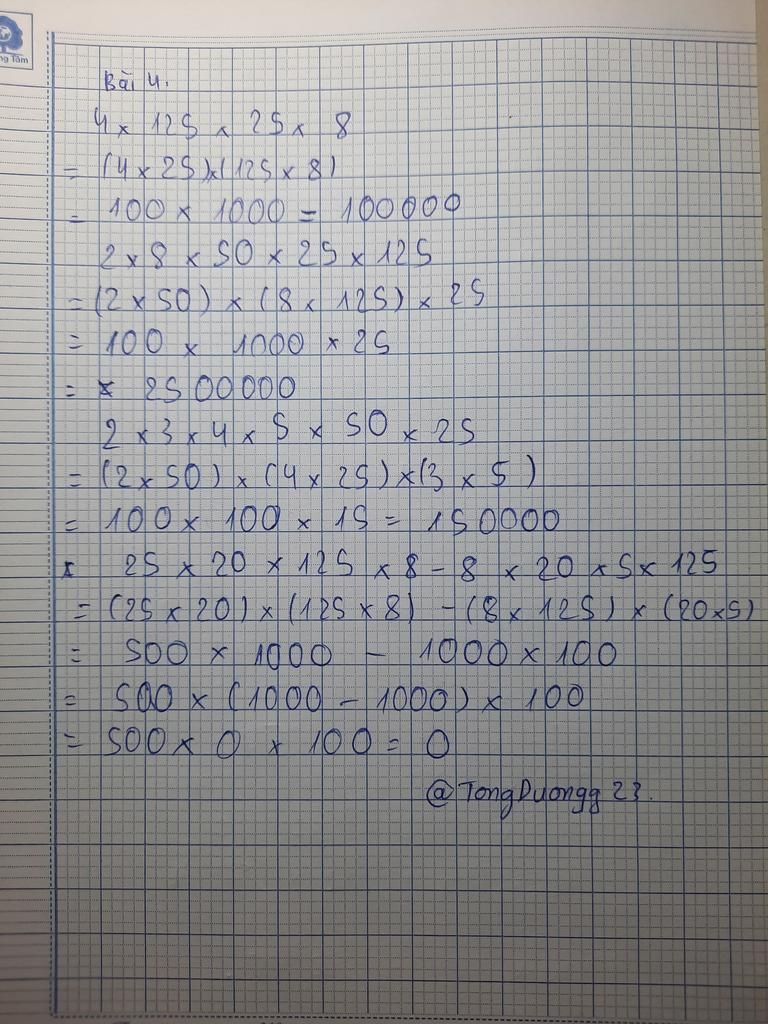 ng Tâm
Bài 4.
4 × 125 × 25 × 8
= (4 × 25) × (125 × 8)
= 100 × 1000 = 100000
2 × 8 × 50 × 25 × 125
= (2 × 50) × (8 × 125) × 25
= 100 × 1000 × 25
= × 2500000
2 × 3 × 4 × 5 × 50 × 25
= (2 × 50) × (4 × 25) × (3 × 5)
= 100 × 100 × 15 = 150000
× 25 × 20 × 125 × 8 - 8 × 20 × 5 × 125
= (25 × 20) × (125 × 8) - (8 × 125) × (20 × 5)
= 500 × 1000 - 1000 × 100
= 500 × (1000 - 1000) × 100
= 500 × 0 × 100 = 0
@TongDuongg23.